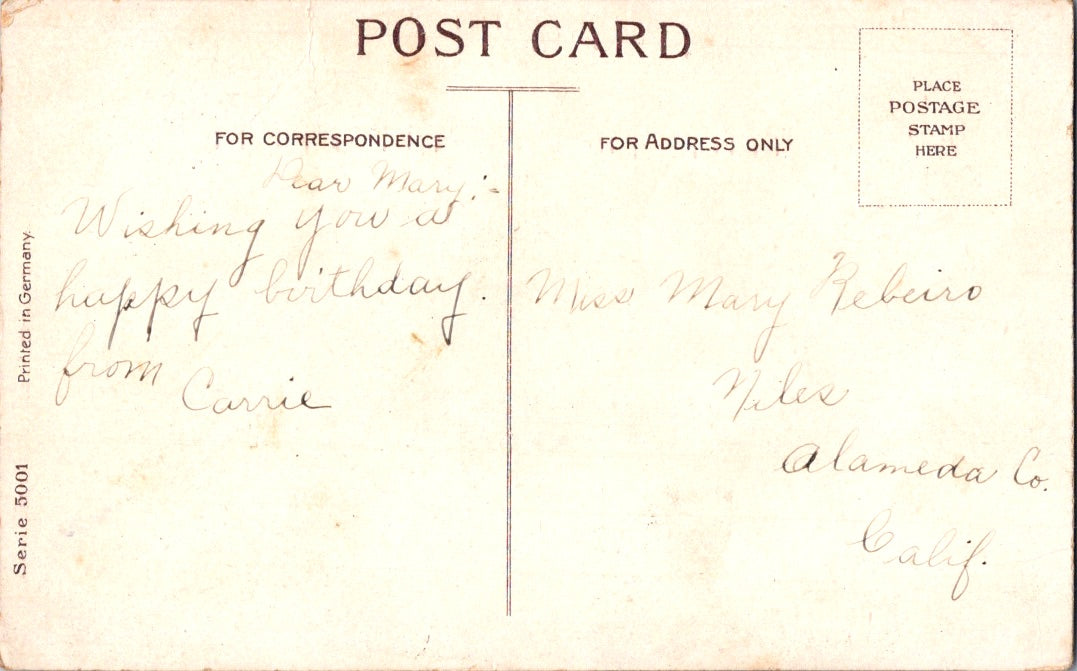 POST CARD
PLACE
POSTAGE
STAMP
HERE
FOR CORRESPONDENCE
FOR ADDRESS ONLY
Dear Mary:-
Wishing you a
happy birthday.
from
Carrie
Miss Mary Rebeiro
Niles
Alameda Co.
Calif.
Printed in Germany.
Serie 5001